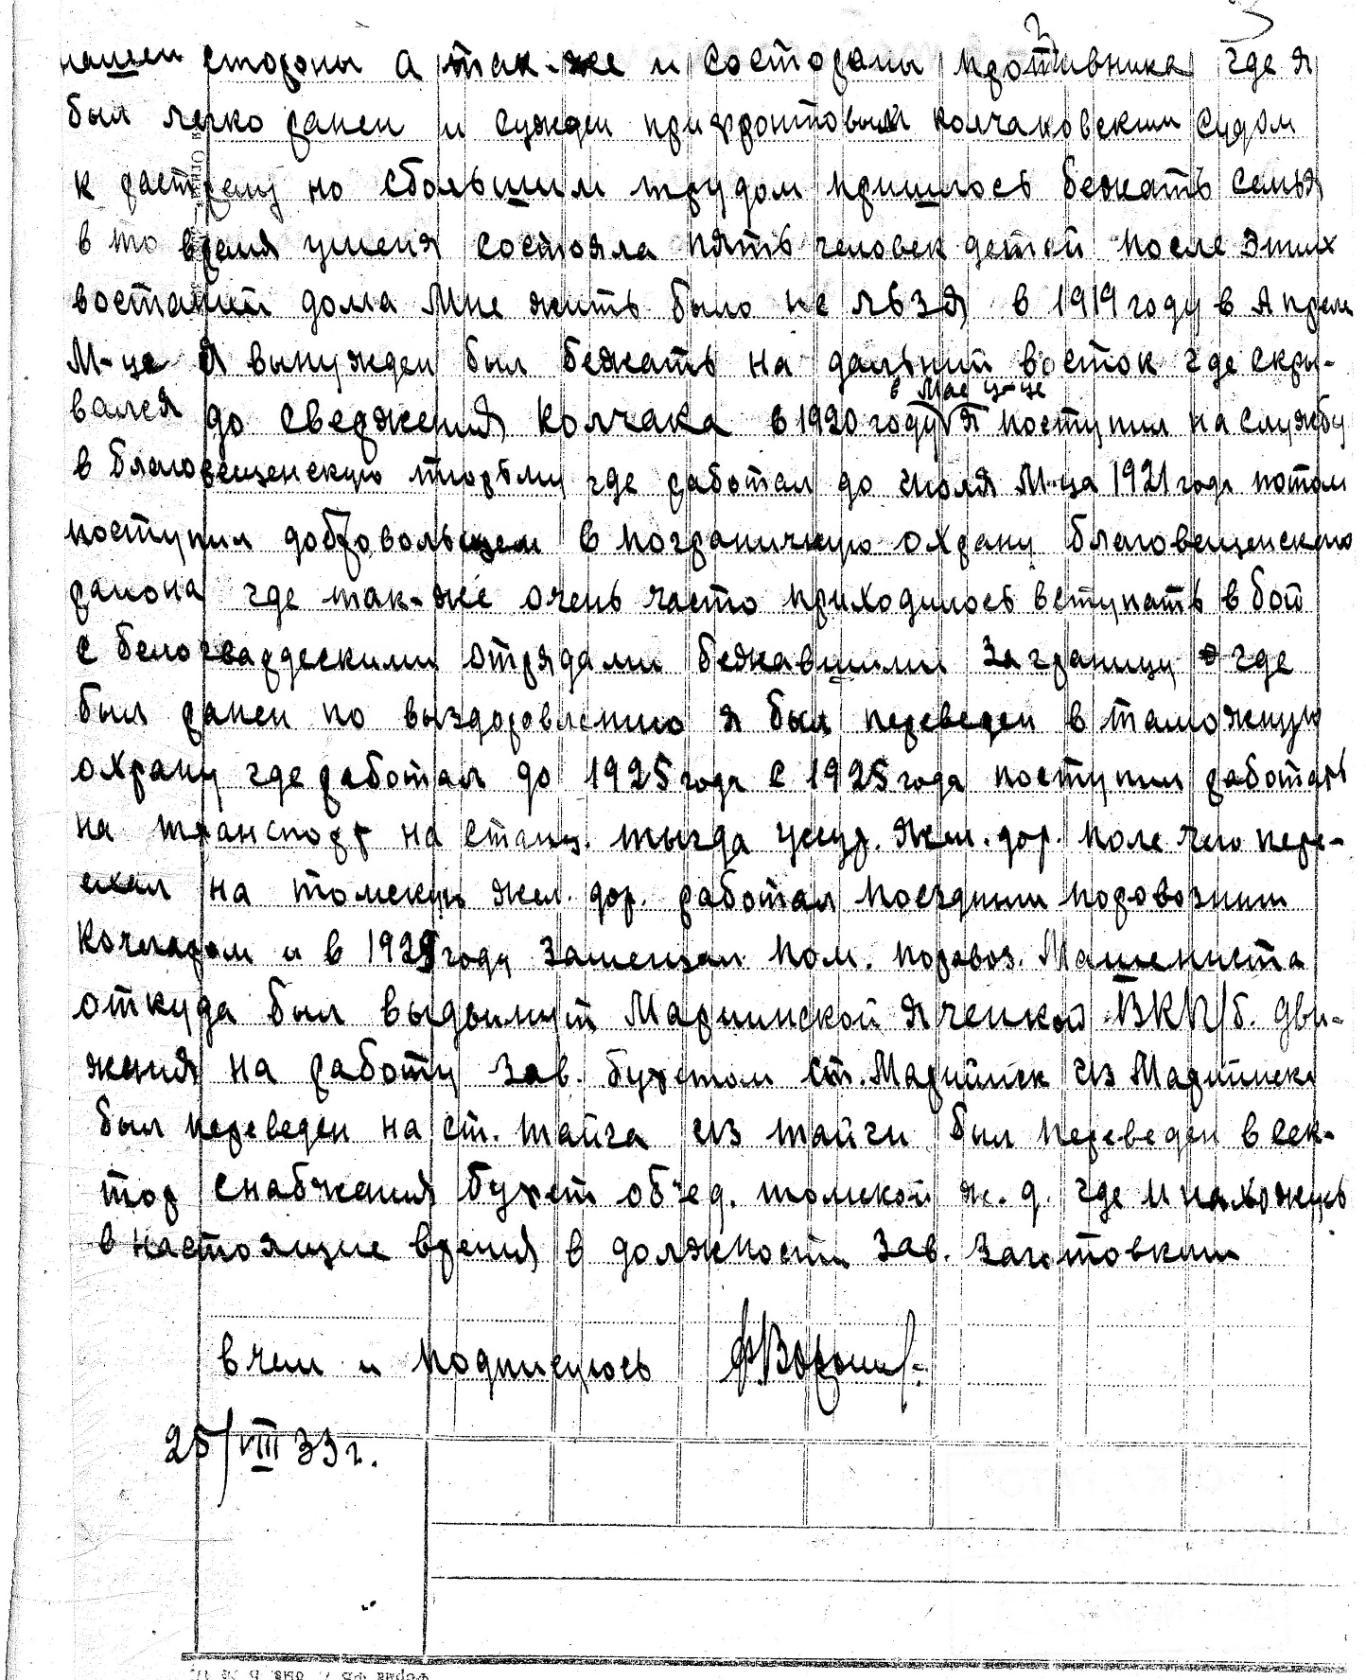 3
нашей стороны а так-же и состороны противника где я
был легко ранен и сужден прифронтовым колчаковским судом
к растрелу но сбольшим трудом пришлось бежать семья
в то время уменя состояла пять человек детей после этих
востаний дома мне жить было не львзя в 1919 году в Апреле
М-це я вынужден был бежать на дальний восток где скры-
вался до свержения Колчака в 1920 году в Мае ц-це я поступил на службу
в благовещенскую тюрьму где работал до июля М-ца 1921 года потом
поступил добровольцем в пограничную охрану благовещенского
раиона где так-же очень часто приходилось вступать в бой
с белогвардескими отрядами бежавшими за границу где
был ранен по выздоровлению я был переведен в таможную
охрану где работал до 1925 года с 1925 года поступил работать
на транспорт на станц. тыгда уссур. жел. дор. поле чего пере-
ехал на томскую жел. дор. работал поездным паровозным
Кочегаром и в 1929 году замещал пом. паровоз. Машениста
откуда был выдвинут Мариинской ячейкой ВКП/б. дви-
жения на работу зав. буфетом ст. Мариинск из Мариинска
был переведен на ст. тайга из тайги был переведен в сек-
тор снабжения буфет объед. томской ж. д. где и нахожусь
в настоящие время в должности зав. заготовками
в чем и подписуюсь
25/VIII 33 г.